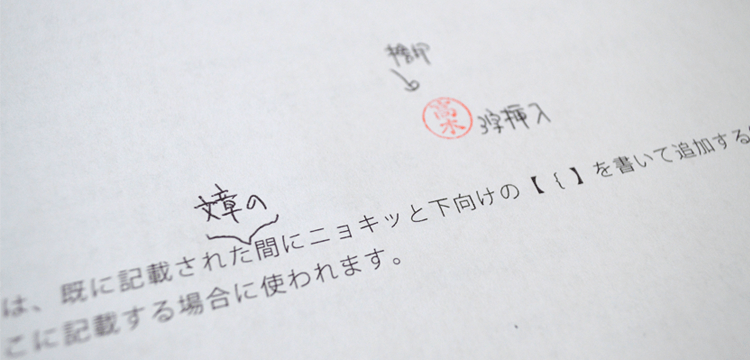 捨印
高木 3字挿入
文章の
は、既に記載された間にニョキッと下向けの【 { 】を書いて追加する
こに記載する場合に使われます。